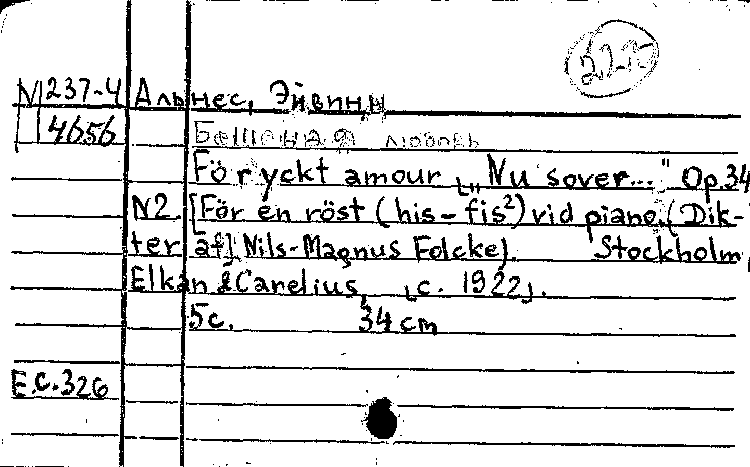 N 237-4 Альнес, Эйвинд
4656 Бешеная любовь
För yckt amour „Nu sover..." Op.34
N2. [För en röst (his-fis²) vid piano. (Dik-
ter af] Nils-Magnus Folcke). Stockholm,
Elkan & Carelius, [c. 1922].
5с. 34 cm
E.C.326